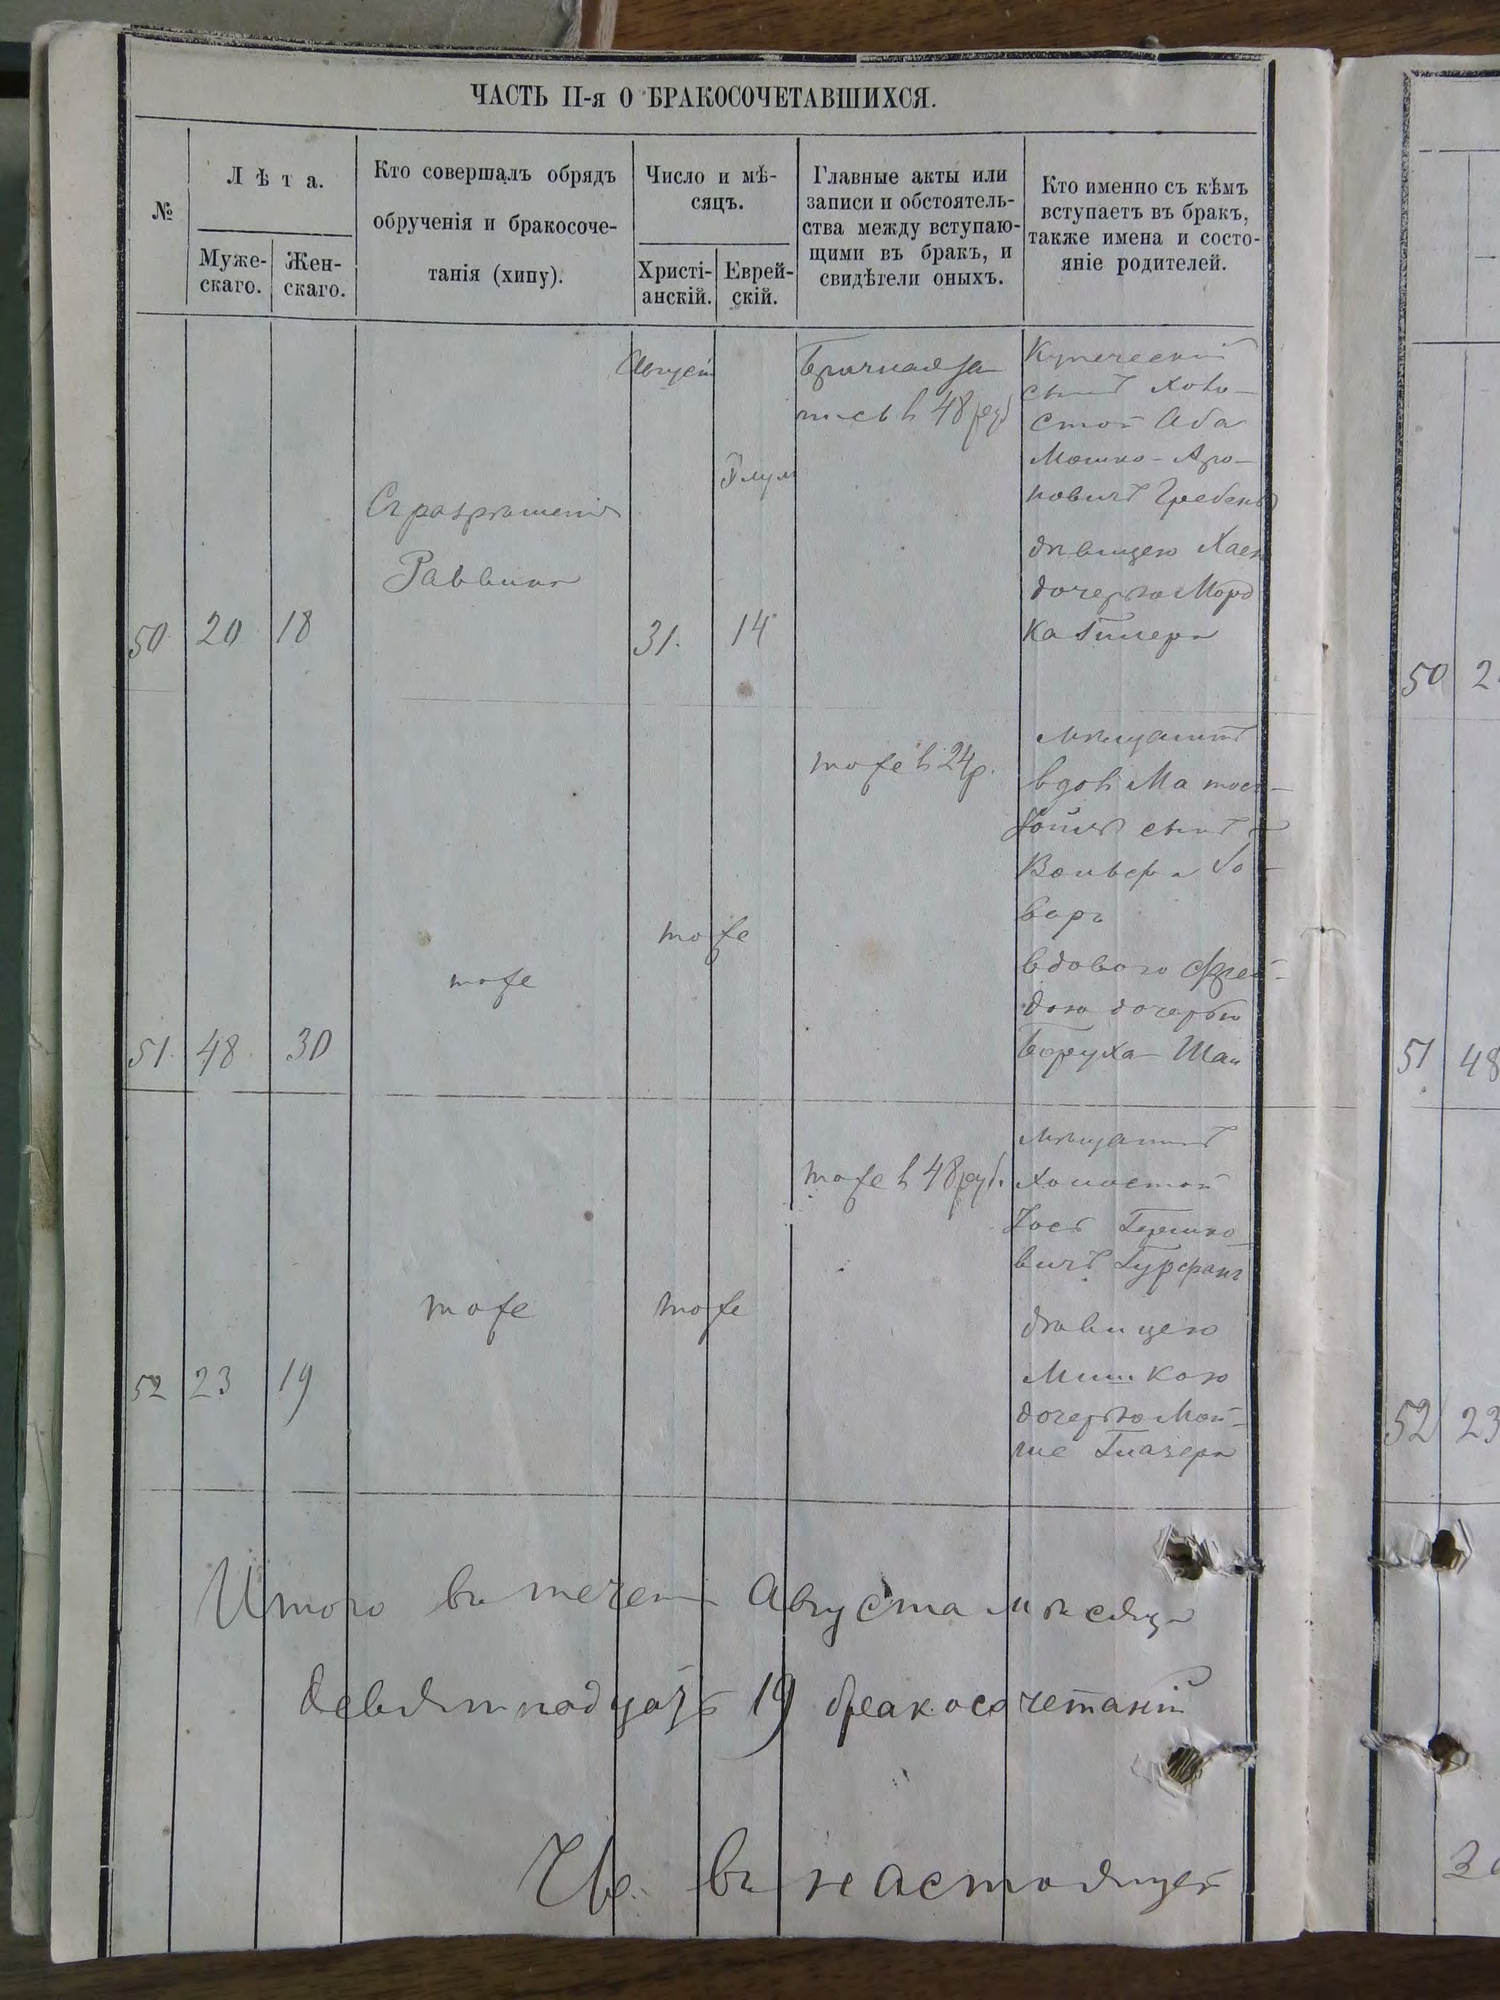 ЧАСТЬ II-я О БРАКОСОЧЕТАВШИХСЯ.
№
Лѣта.
Муже-
скаго.
Жен-
скаго.
Кто совершалъ обрядъ
обрученія и бракосоче-
танія (хипу).
Число и мѣ-
сяцъ.
Христі-
анскій.
Еврей-
скій.
Главные акты или
записи и обстоятель-
ства между вступаю-
щими въ бракъ, и
свидѣтели оныхъ.
Кто именно съ кѣмъ
вступаетъ въ бракъ,
также имена и состо-
яніе родителей.
50
20
18
Съ разрѣшенія
Раввина
Август
31.
Элул
14
Брачная за
пись в 48 руб
Купеческій
сынъ холо-
стой Аба
Мошко-Аро-
новичъ Гребень
дѣвицею Хаею
дочерью Морд
ка
51.
48
30
тоже
тоже
тоже в 24 р.
мѣщанинъ
вдов
сынъ
Вольфа
вдовою Фрей-
дою дочерью
Боруха
52
23
19
тоже
тоже
тоже в 48 руб.
мѣщанинъ
холостой
Іось Гершко
вичъ
дѣвицею
дочерью Мой-
ше Глазера
Итого въ течен Августа мѣсяца
девятнадцать 19 бракосочетаній
въ настоящей
50
2
51
48
52
23